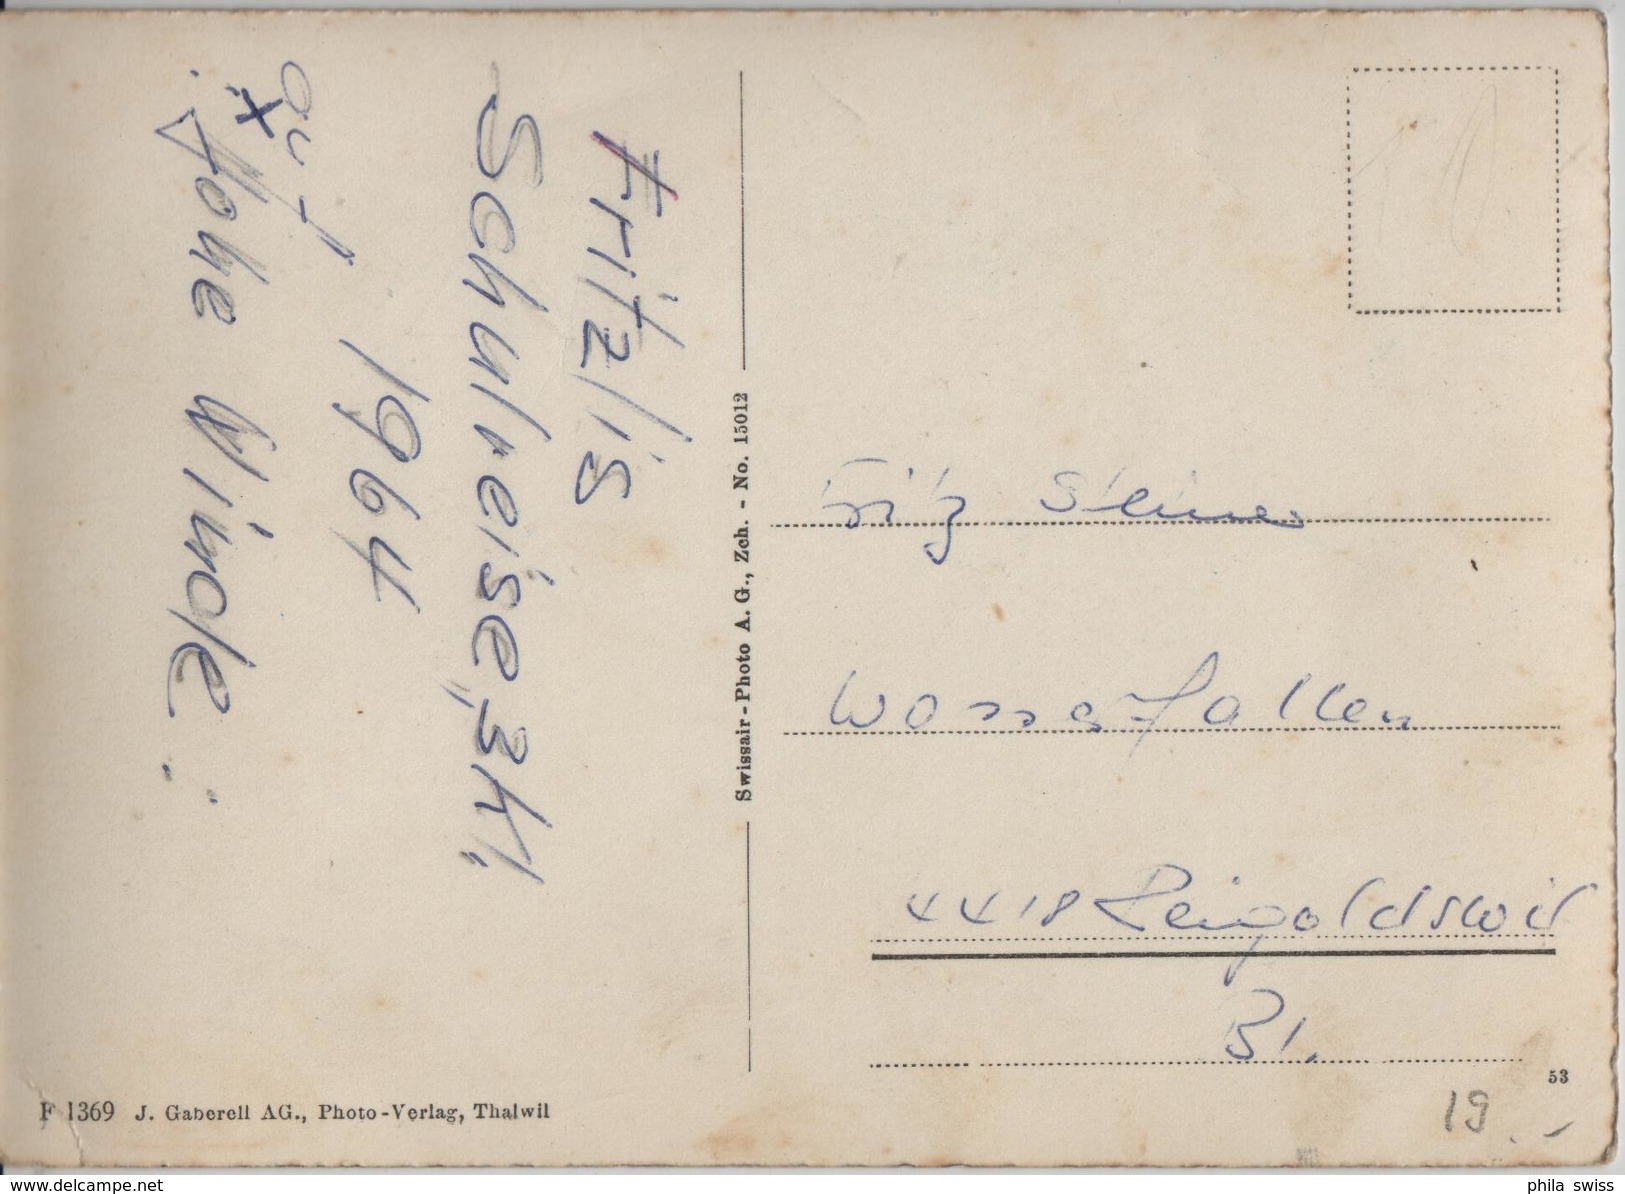 Fritzlis
Schulreise, 3 Kl.
1964
auf
Hohe Winde.
Swissair-Photo A. G., Zch. - No. 15012
Fritz Steiner
Wasserfallen
4418 Reigoldswil
Bl.
53
19.-
F 1369 J. Gaberell AG., Photo-Verlag, Thalwil
www.delcampe.net
phila swiss